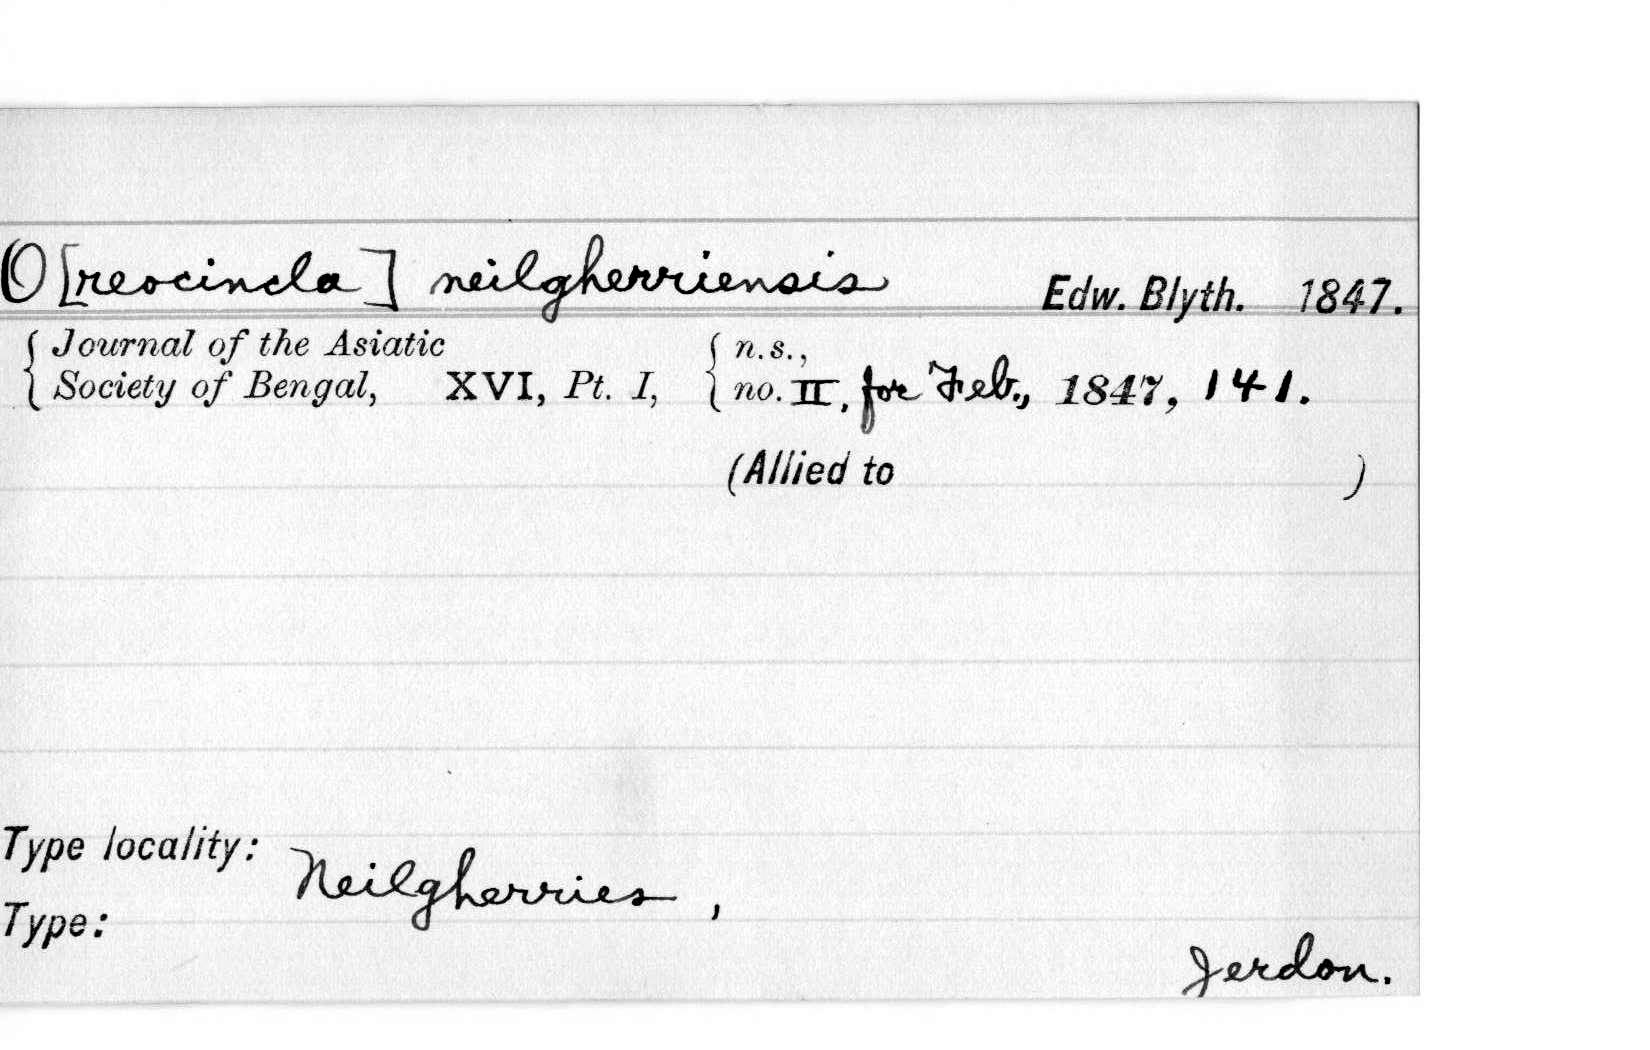 O[reocincla] neilgherriensis Edw. Blyth. 1847.
{ Journal of the Asiatic { n.s.,
{ Society of Bengal, XVI, Pt. I, { no. II, for Feb., 1847, 141.
(Allied to )
Type locality: Neilgherries ,
Type:
Jerdon.